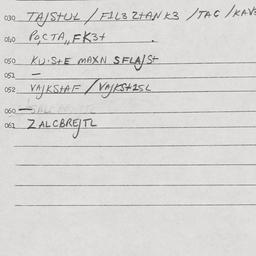 030 TAJStUL / F1L3 ZtANK3 / TAC / KAV3
040 PO,CTA,,FK3t
050 KU·StE MAXN SFLAJSt
051 —
052 VAJKStAF / VAJKSt25L
060 —
061 ZALCBREJTL